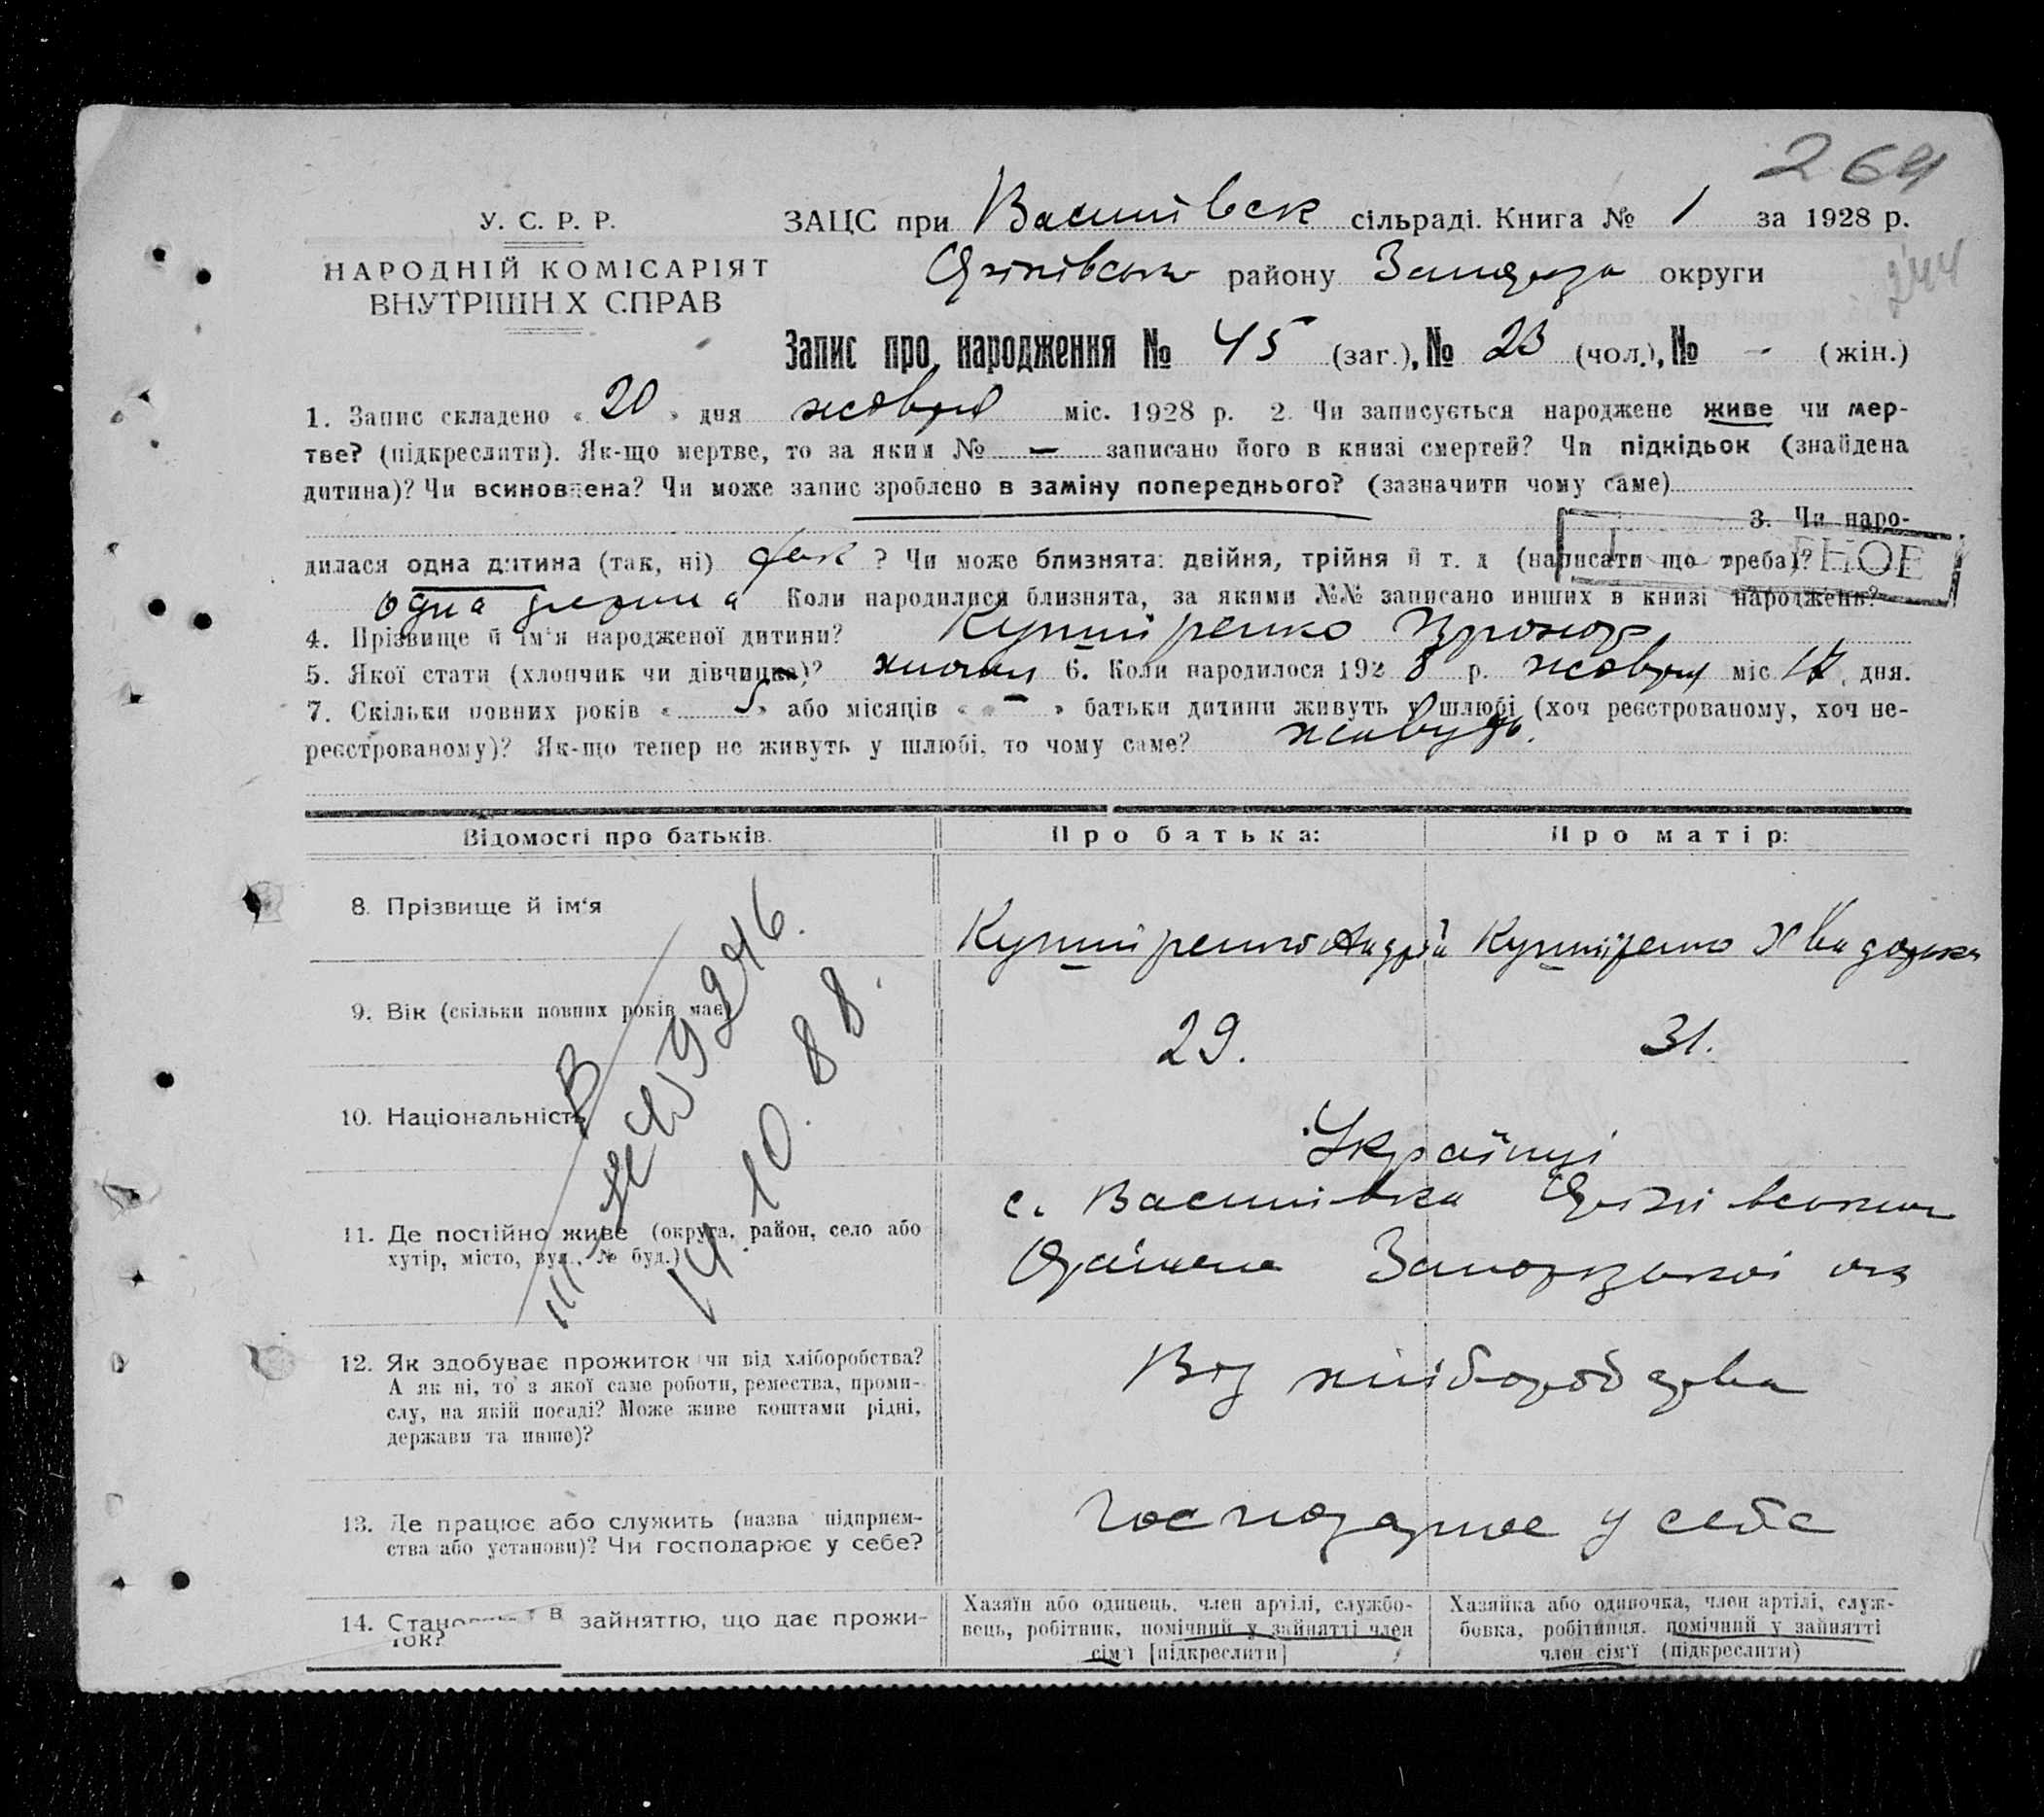 264
У. С. Р. Р.
НАРОДНІЙ КОМІСАРІЯТ
ВНУТРІШН.Х СПРАВ
ЗАЦС при Василівськ сільраді. Книга № 1 за 1928 р.
району округи
244
Запис про народження № 45 (заг.), № 23 (чол.), № - (жін.)
1. Запис складено « 20 » дня жовтня міс. 1928 р. 2. Чи записується народжене живе чи мер-
тве? (підкреслити). Як-що мертве, то за яким № — записано його в книзі смертей? Чи підкідьок (знайдена
дитина)? Чи всиновлена? Чи може запис зроблено в заміну попереднього? (зазначити чому саме)
3. Чи наро-
дилася одна дитина (так, ні) так ? Чи може близнята: двійня, трійня й т. д (написати що треба)?
одна дитина Коли народилися близнята, за якими №№ записано инших в книзі народжень?
4. Прізвище й ім'я народженої дитини? Кушніренко
5. Якої стати (хлопчик чи дівчинка)? хлопчик 6. Коли народилося 1928 р. жовтня міс. дня.
7. Скільки повних років « 5 » або місяців « - » батьки дитини живуть у шлюбі (хоч реєстрованому, хоч не-
реєстрованому)? Як-що тепер не живуть у шлюбі, то чому саме? живуть.
Відомості про батьків. Про батька: Про матір:
8. Прізвище й ім'я
Кушніренко Андрій Кушніренко
9. Вік (скільки повних років має)
29. 31.
10. Національність
Українці
11. Де постійно живе (округа, район, село або
хутір, місто, вул., № буд.)
с. Василівка
Запорізької окр
14.10.88.
12. Як здобуває прожиток чи від хліборобства?
А як ні, то з якої саме роботи, ремества, проми-
слу, на якій посаді? Може живе коштами рідні,
держави та инше)?
Від хліборобства
13. Де працює або служить (назва підприєм-
ства або установи)? Чи господарює у себе?
Господарює у себе
14. зайняттю, що дає прожи-
ток?
Хазяїн або одинець, член артілі, службо-
вець, робітник, помічний у зайнятті член
сім'ї [підкреслити]
Хазяйка або одиночка, член артілі, служ-
бовка, робітниця, помічний у зайнятті
член сім'ї (підкреслити)